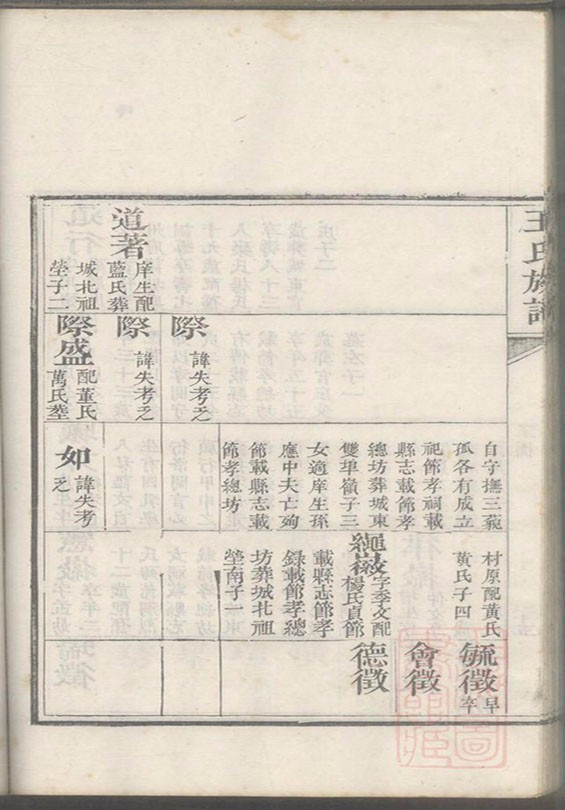 王氏族譜
道著
庠生配
藍氏葬
城北祖
塋子二
際
諱失考乏
際
諱失考乏
際盛
配董氏
萬氏塋
自守撫三載
孤各有成立
祀節孝祠載
縣志載節孝
總坊葬城東
雙埠嶺子三
女適庠生孫
應中夫亡殉
節載縣志載
節孝總坊
如
諱失考
乏
村原配黃氏
黃氏子四
繩徽
字季文配
楊氏貞節
載縣志節孝
錄載節孝總
坊葬城北祖
塋南子一
毓徵
早卒
會徵
德徵